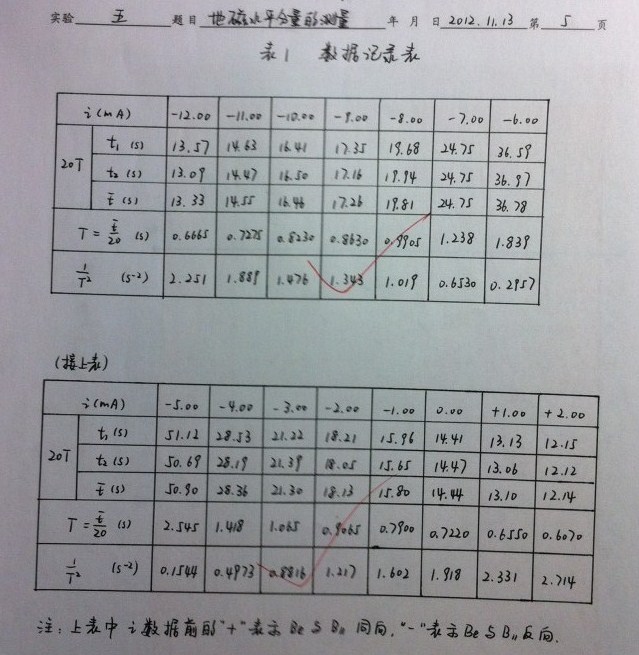 实验 五 题目 地磁水平分量的测量 年 月 日 2012.11.13 第 5 页
表1 数据记录表
i(mA) -12.00 -11.00 -10.00 -9.00 -8.00 -7.00 -6.00
20T t₁ (s) 13.57 14.63 16.41 17.35 19.68 24.75 36.59
t₂ (s) 13.09 14.47 16.50 17.16 19.94 24.75 36.97
t̄ (s) 13.33 14.55 16.46 17.26 19.81 24.75 36.78
T = t̄/20 (s) 0.6665 0.7275 0.8230 0.8630 0.9905 1.238 1.839
1/T² (s⁻²) 2.251 1.889 1.476 1.343 1.019 0.6530 0.2957
(接上表)
i(mA) -5.00 -4.00 -3.00 -2.00 -1.00 0.00 +1.00 +2.00
20T t₁(s) 51.12 28.53 21.22 18.21 15.96 14.41 13.13 12.15
t₂ (s) 50.69 28.19 21.39 18.05 15.65 14.47 13.06 12.12
t̄ (s) 50.90 28.36 21.30 18.13 15.80 14.44 13.10 12.14
T = t̄/20 (s) 2.545 1.418 1.065 0.9065 0.7900 0.7220 0.6550 0.6070
1/T² (s⁻²) 0.1544 0.4973 0.8816 1.217 1.602 1.918 2.331 2.714
注：上表中 i 数据前的"+"表示 Be 与 B∥ 同向，"-"表示 Be 与 B∥ 反向.